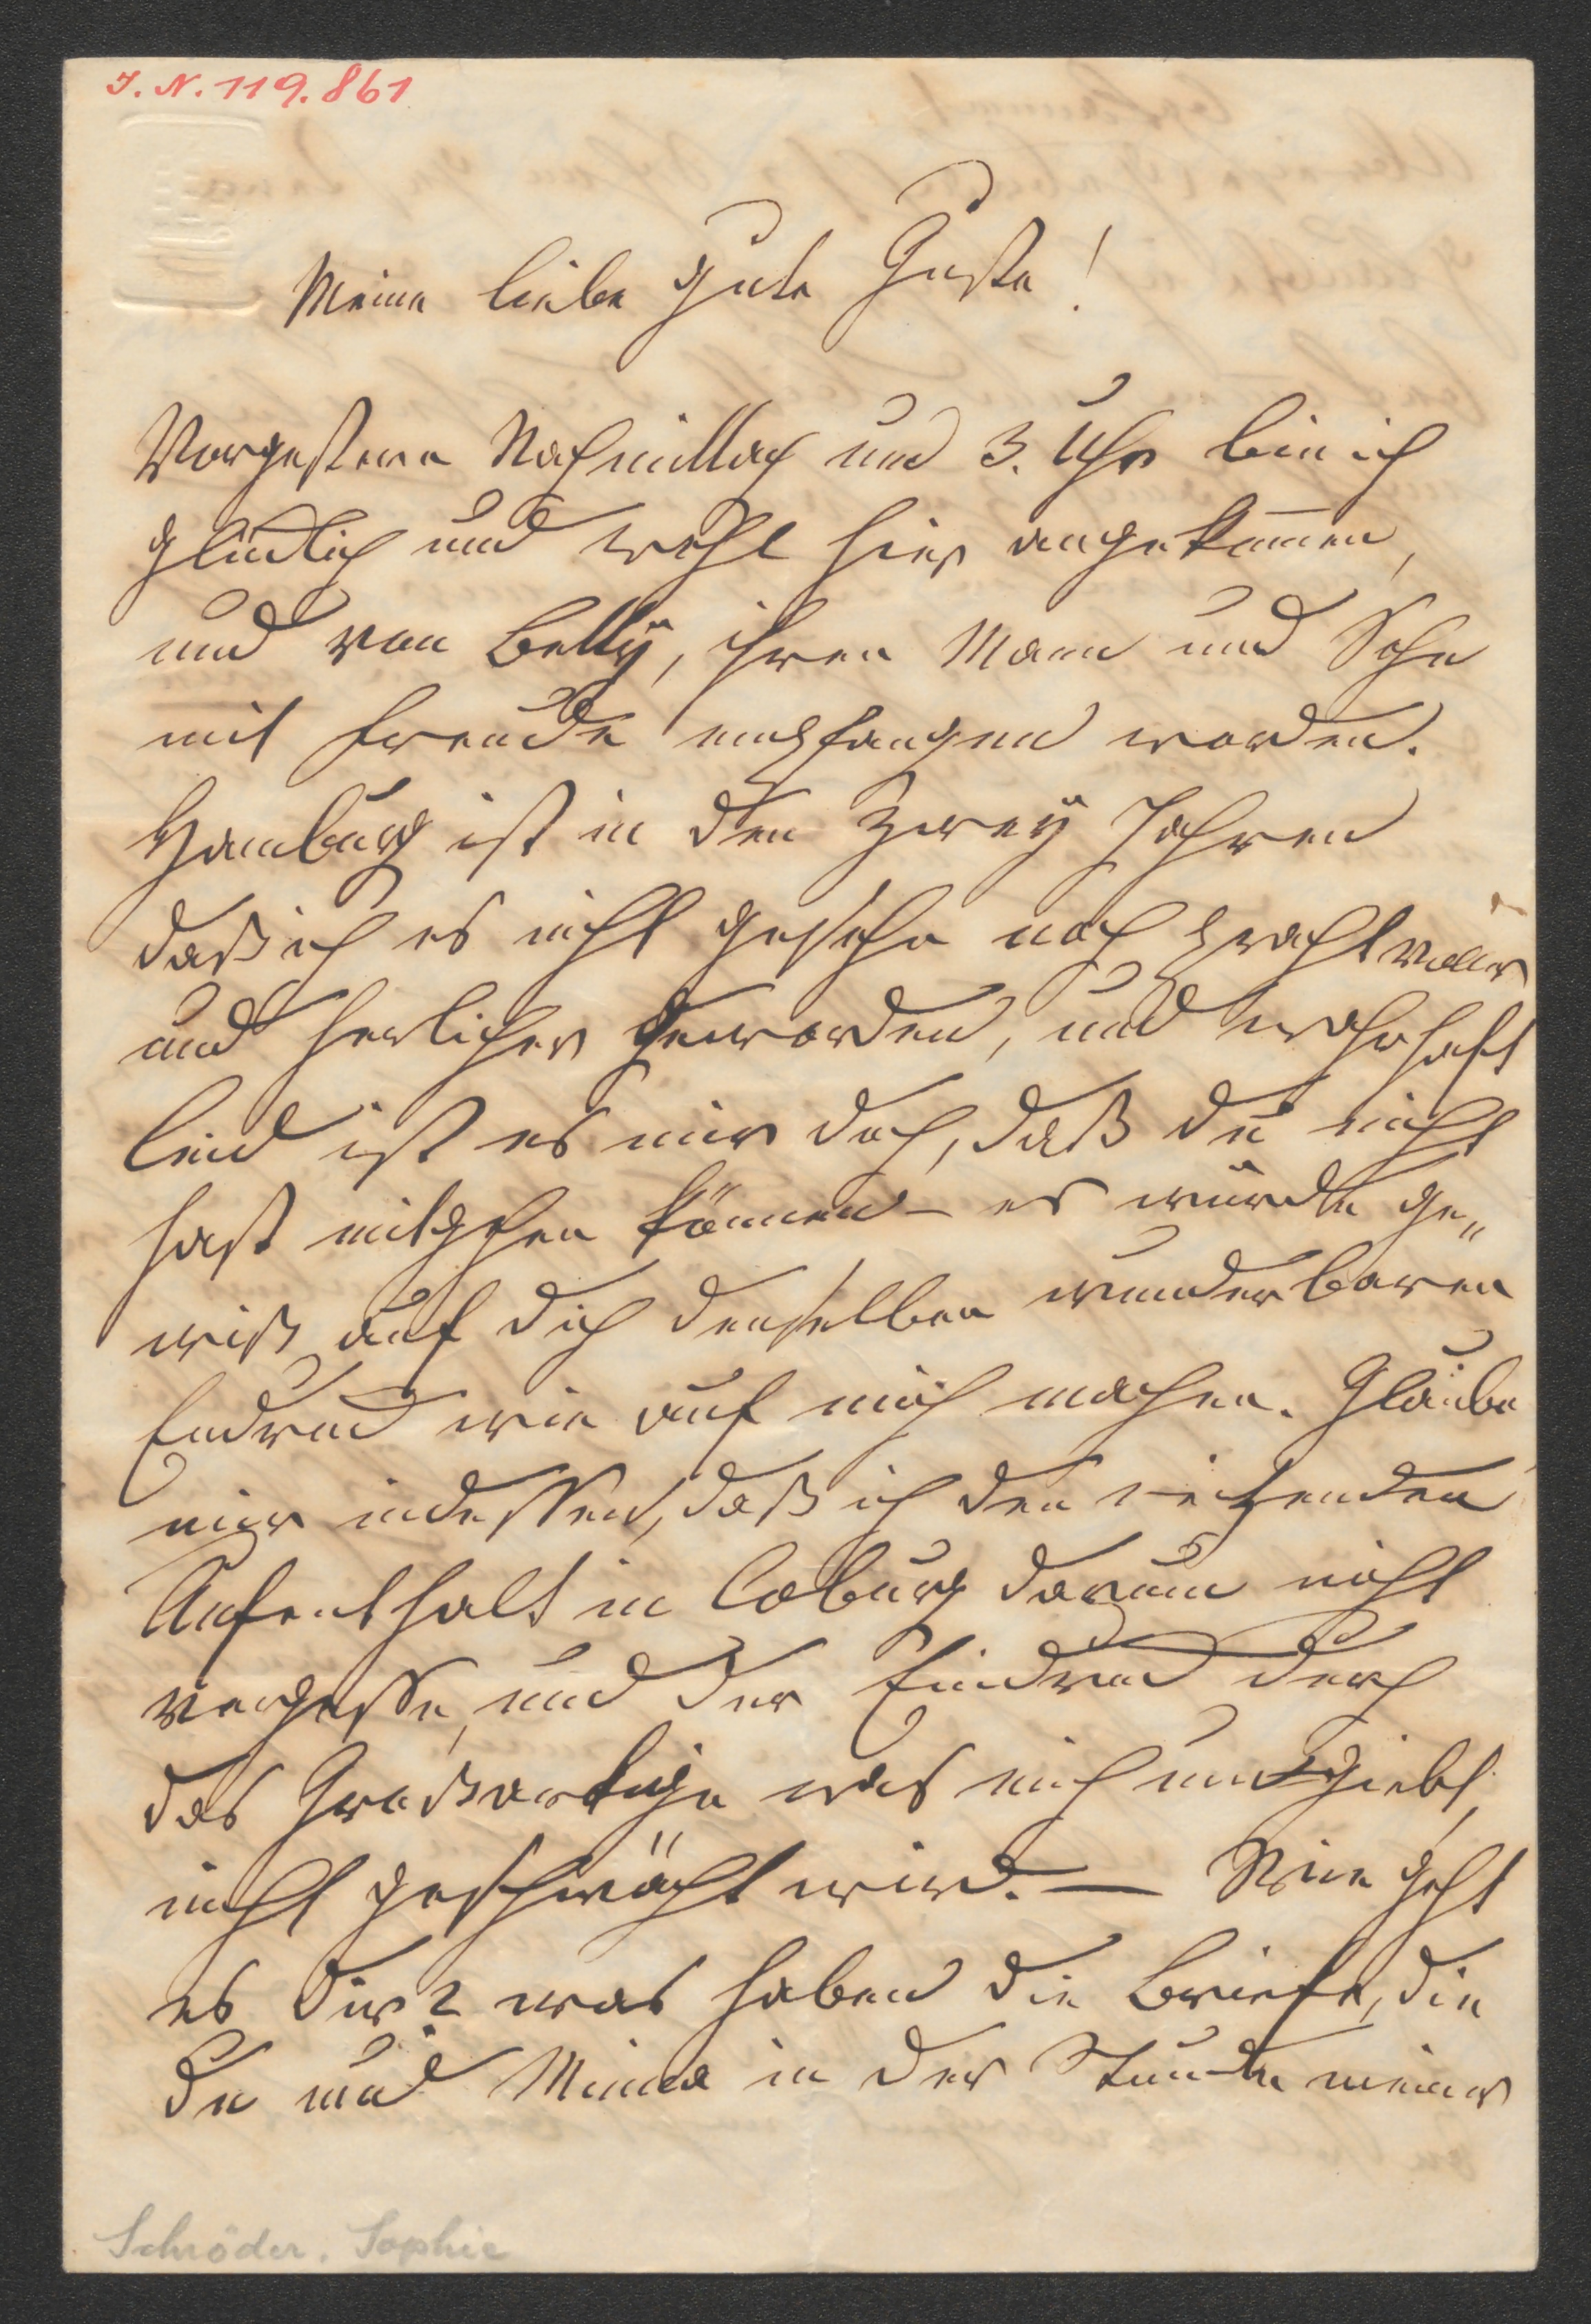 J. N. 119.861
Meine liebe gute Guste!
Vorgestern Nachmittag um 3. Uhr bin ich
glücklich und wohl hier angekom̄en,
und von Betty, ihren Mann und Sohn
mit Freude empfangen worden.
Hamburg ist in den zwey Jahren
daß ich es nicht gesehn noch prachtvoller
und herlicher geworden, und wahrhaft
leid ist es mir doch, daß du nicht
hast mitgehen können – es würde ge„
wiß auf dich denselben wunderbaren
Eindruck wie auf mich machen. Glaube
mir indessen, daß ich den reitzenden
Aufenthalt in Coburg darum nicht
vergesse, und der Eindruck durch
das Großartige was mich umgiebt,
nicht geschwächt wird. — Wie geht
es Dir? was haben die Briefe, die
du und Minna in der Stunde meiner
Schröder, Sophie